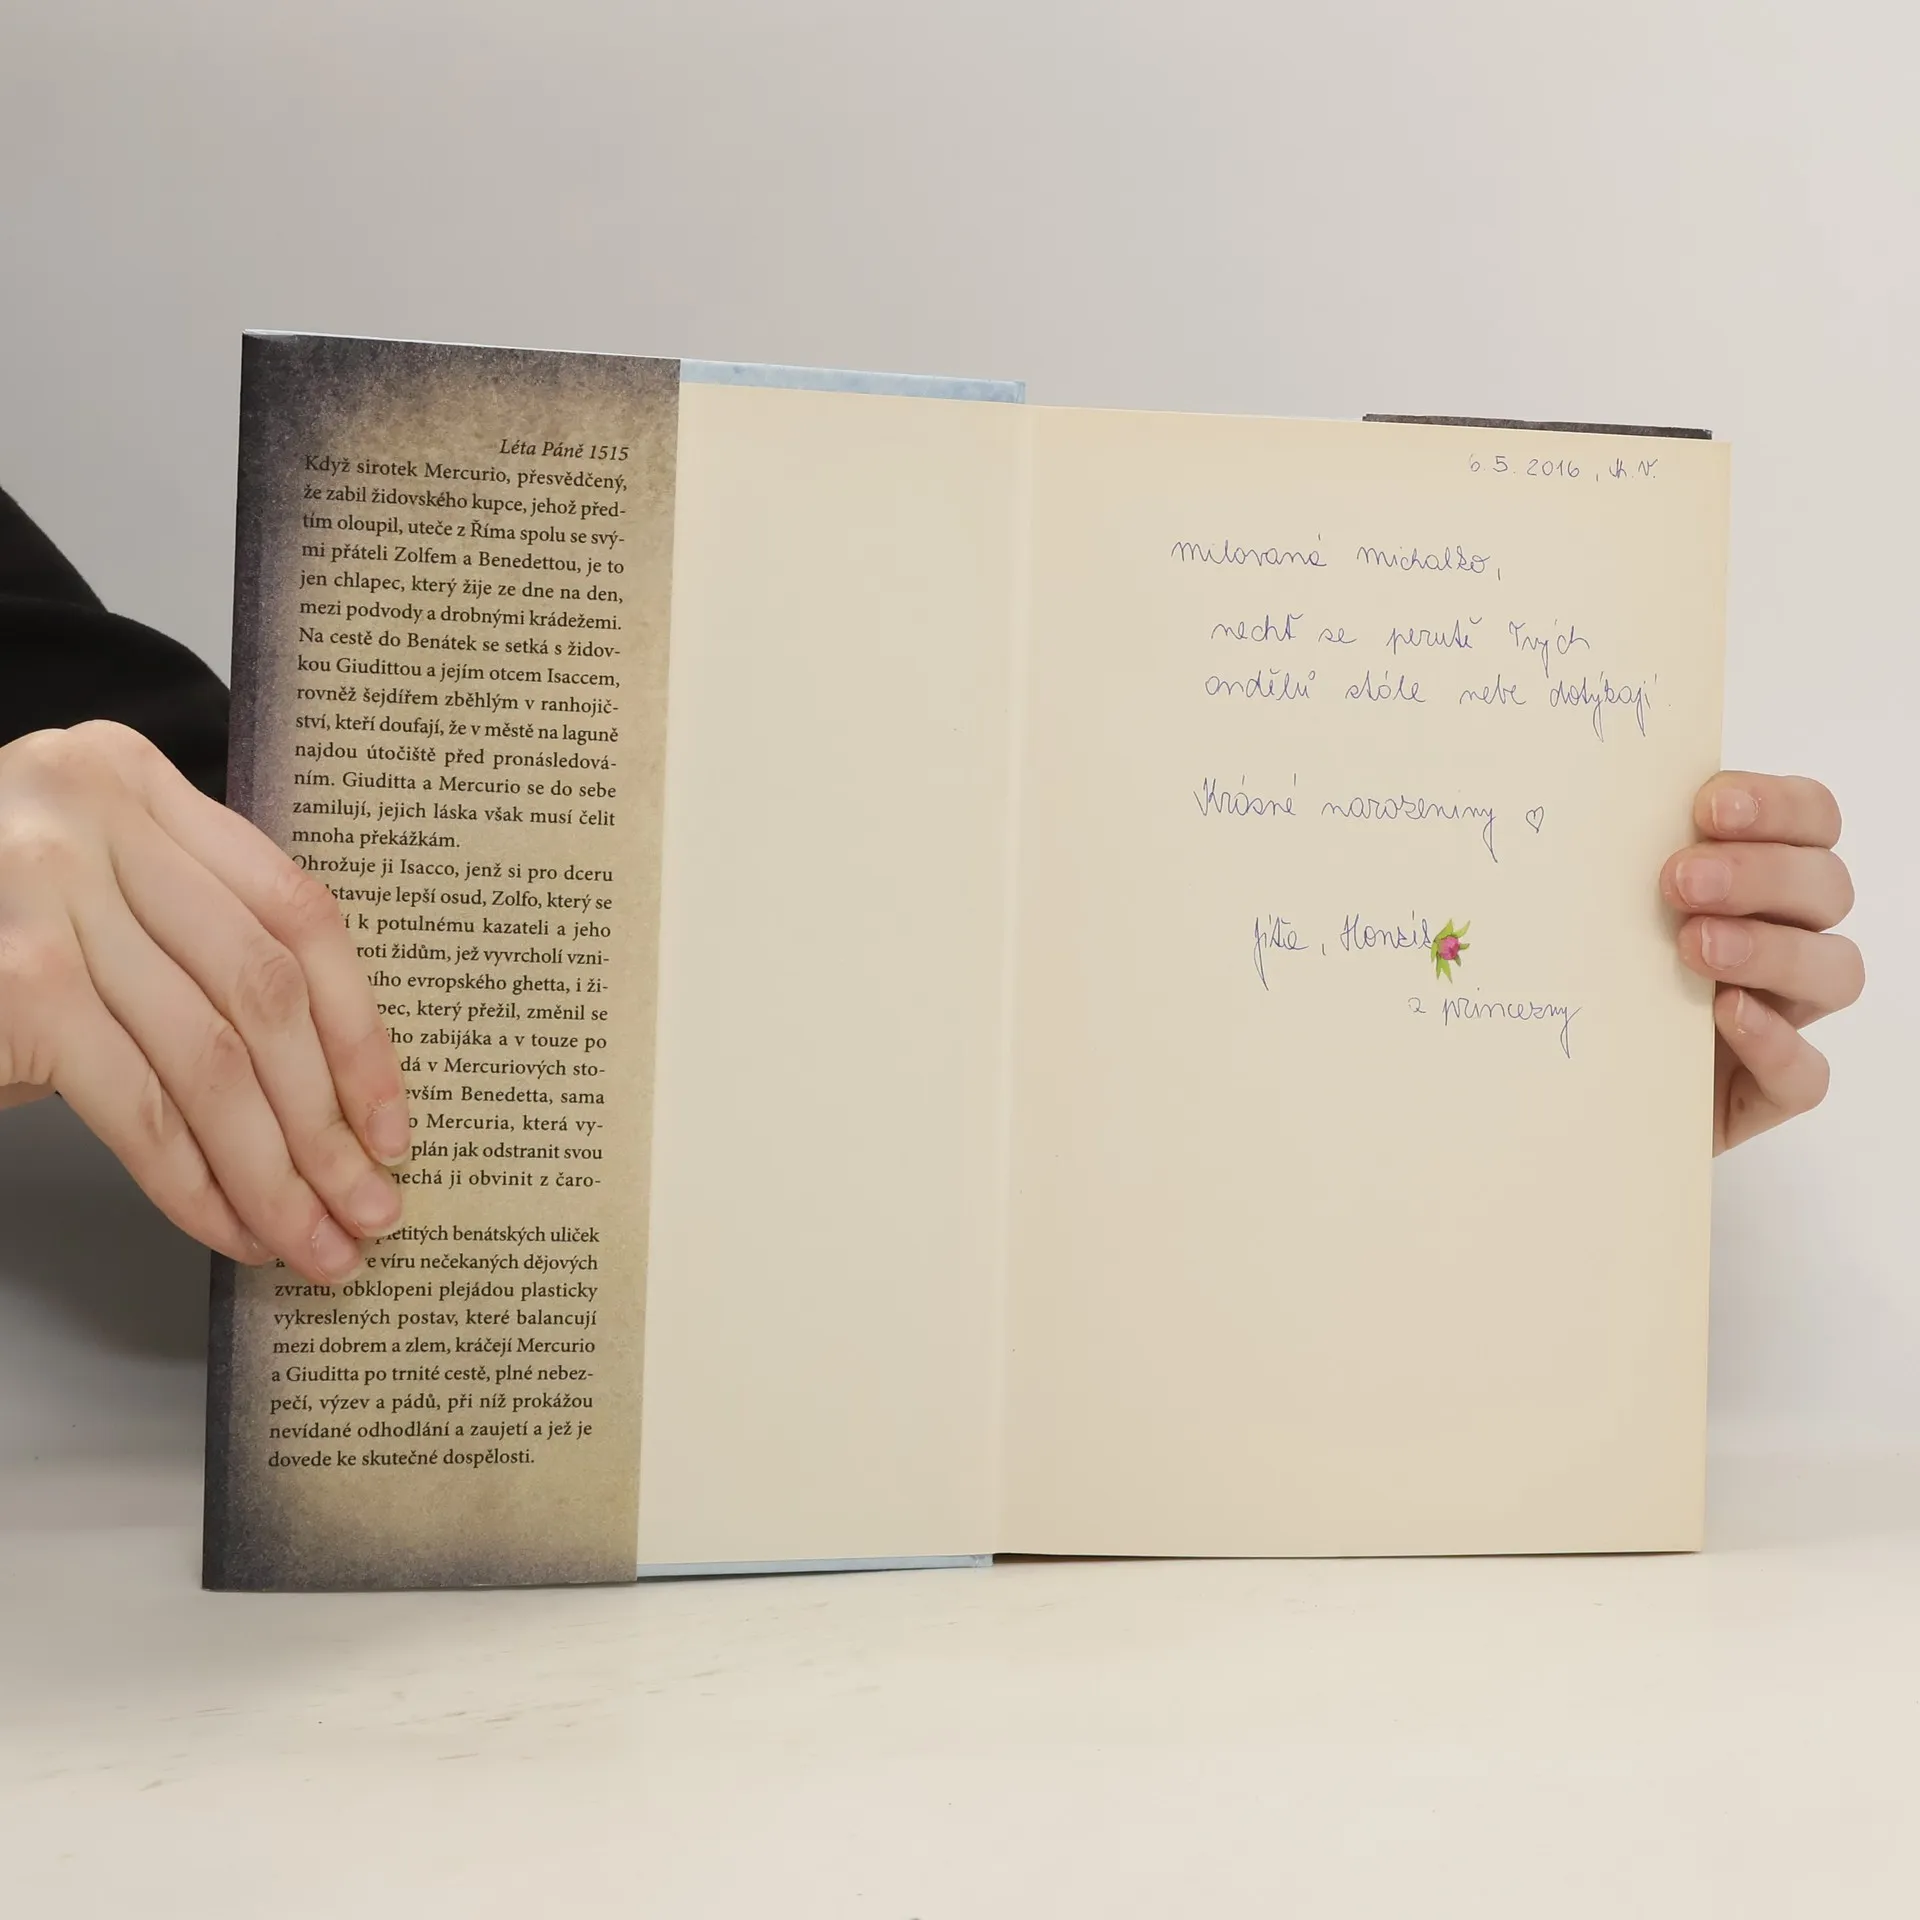 Léta Páně 1515
Když sirotek Mercurio, přesvědčený,
že zabil židovského kupce, jehož před-
tím oloupil, uteče z Říma spolu se svý-
mi přáteli Zolfem a Benedettou, je to
jen chlapec, který žije ze dne na den,
mezi podvody a drobnými krádežemi.
Na cestě do Benátek se setká s židov-
kou Giudittou a jejím otcem Isaccem,
rovněž šejdířem zběhlým v ranhojič-
ství, kteří doufají, že v městě na laguně
najdou útočiště před pronásledová-
ním. Giuditta a Mercurio se do sebe
zamilují, jejich láska však musí čelit
mnoha překážkám.
Ohrožuje ji Isacco, jenž si pro dceru
stavuje lepší osud, Zolfo, který se
k potulnému kazateli a jeho
roti židům, jež vyvrcholí vzni-
ího evropského ghetta, i ži-
pec, který přežil, změnil se
ho zabijáka a v touze po
dá v Mercuriových sto-
evším Benedetta, sama
o Mercuria, která vy-
plán jak odstranit svou
nechá ji obvinit z čaro-
letitých benátských uliček
a ve víru nečekaných dějových
zvratů, obklopeni plejádou plasticky
vykreslených postav, které balancují
mezi dobrem a zlem, kráčejí Mercurio
a Giuditta po trnité cestě, plné nebez-
pečí, výzev a pádů, při níž prokážou
nevídané odhodlání a zaujetí a jež je
dovede ke skutečné dospělosti.
6.5. 2016, K.V.
Milovaná Michalko,
nechť se perutě Tvých
andělů stále nebe dotýkají.
Krásné narozeniny ♡
Jíťa, Honzík
a princezny